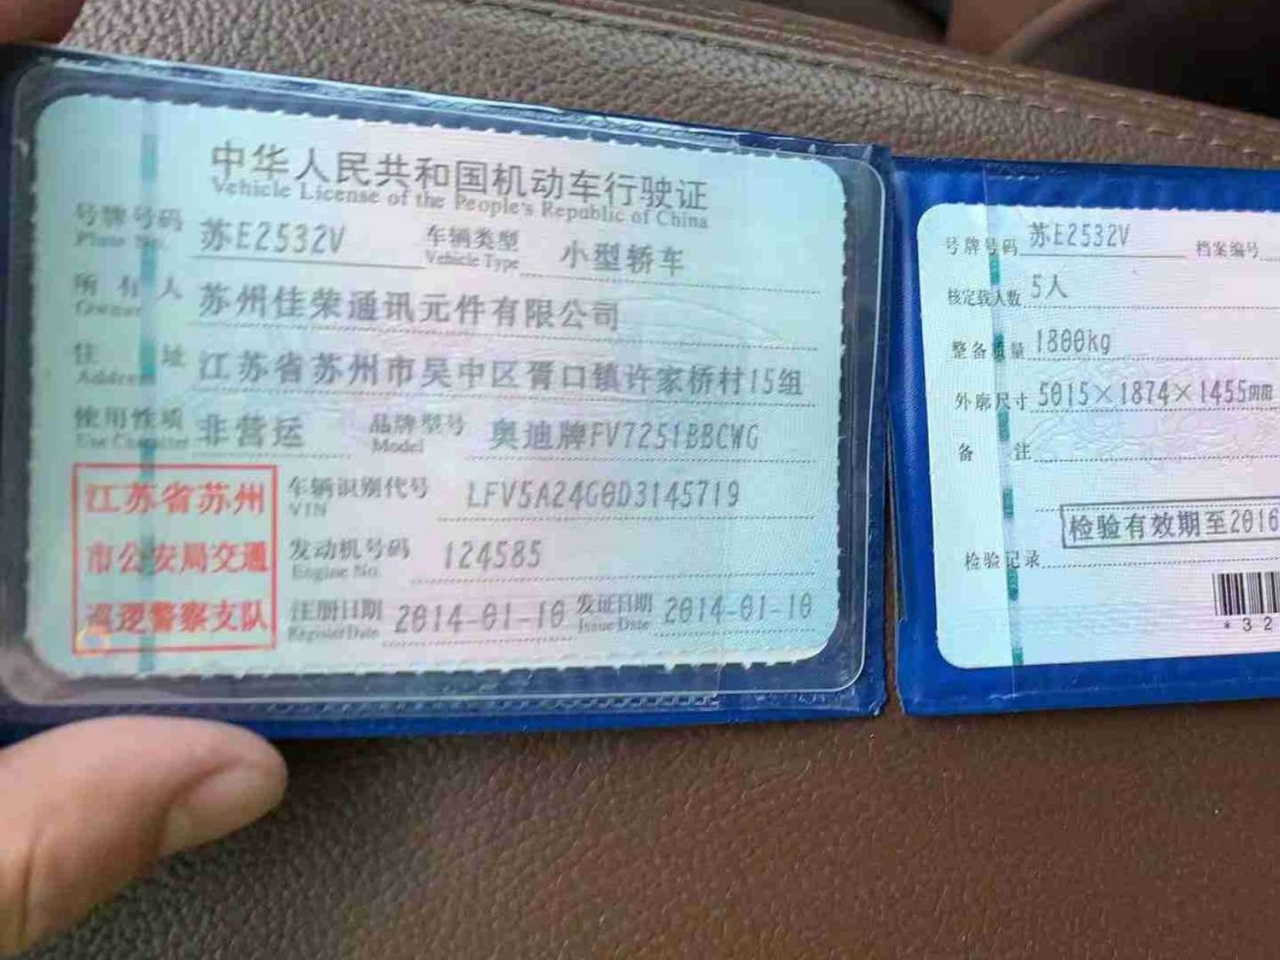 中华人民共和国机动车行驶证
Vehicle License of the People's Republic of China
号牌号码 苏E2532V 车辆类型 小型轿车
Plate No. Vehicle Type
所有人 苏州佳荣通讯元件有限公司
Owner
住址 江苏省苏州市吴中区胥口镇许家桥村15组
Address
使用性质 非营运 品牌型号 奥迪牌FV7251BBCWG
Use Character Model
江苏省苏州
市公安局交通
巡逻警察支队
车辆识别代号 LFV5A24G0D3145719
VIN
发动机号码 124585
Engine No.
注册日期 2014-01-10 发证日期 2014-01-10
Register Date Issue Date
号牌号码 苏E2532V 档案编号
核定载人数 5人
整备质量 1800kg
外廓尺寸 5015×1874×1455mm
备注
检验有效期至2016
检验记录
*32